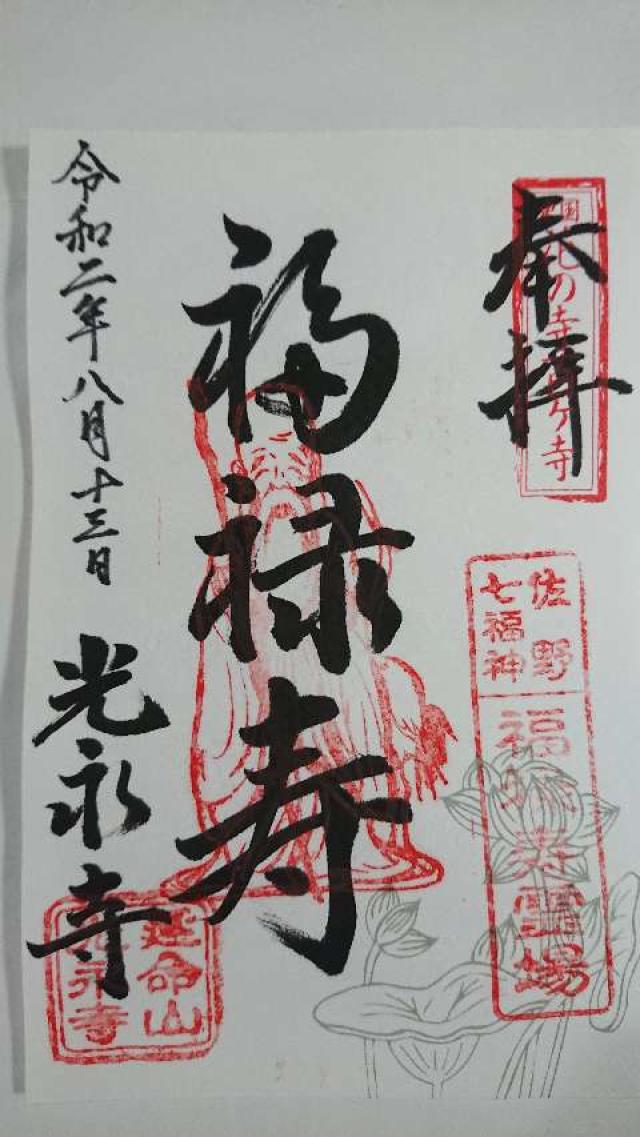 奉拝
の寺
ケ寺
佐野
七福神
福禄寿霊場
福禄寿
令和二年八月十三日
光永寺
延命山
光永寺